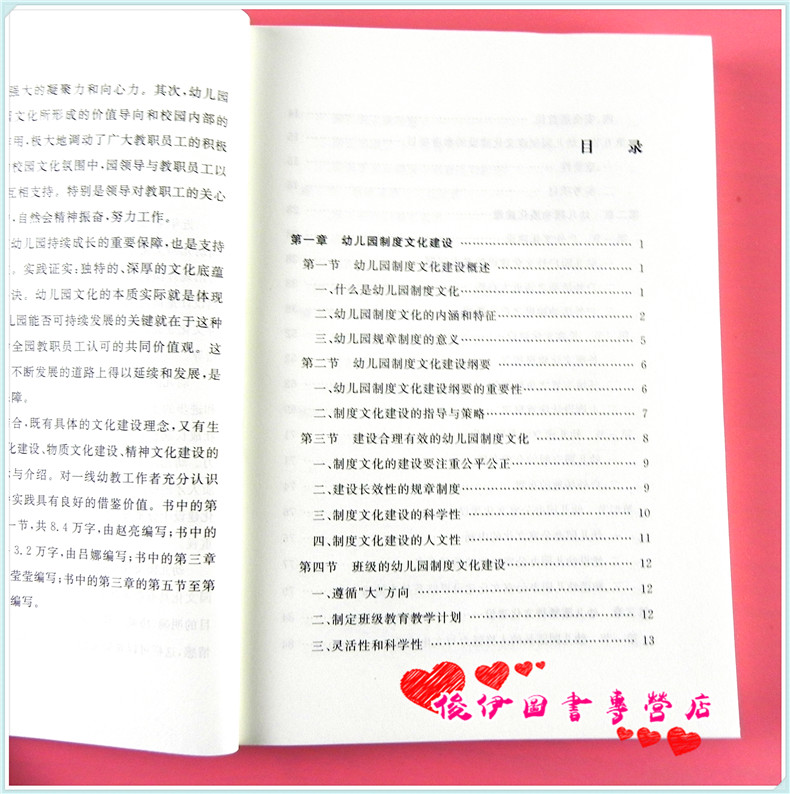 强大的凝聚力和向心力。其次,幼儿园
文化所形成的价值导向和校园内部的
用,极大地调动了广大教职员工的积极
校园文化氛围中,园领导与教职员工以
互相支持。特别是领导对教职工的关心
,自然会精神振奋,努力工作。
幼儿园持续成长的重要保障,也是支持
。实践证实:独特的、深厚的文化底蕴
决。幼儿园文化的本质实际就是体现
儿园能否可持续发展的关键就在于这种
全园教职员工认可的共同价值观。这
不断发展的道路上得以延续和发展,是
障。
合,既有具体的文化建设理念,又有生
化建设、物质文化建设、精神文化建设的
与介绍。对一线幼教工作者充分认识
实践具有良好的借鉴价值。书中的第
一节,共8.4万字,由赵亮编写;书中的
3.2万字,由吕娜编写;书中的第三章
莹莹编写;书中的第三章的第五节至第
编写。
目 录
第一章 幼儿园制度文化建设 …… 1
第一节 幼儿园制度文化建设概述 …… 1
一、什么是幼儿园制度文化 …… 1
二、幼儿园制度文化的内涵和特征 …… 2
三、幼儿园规章制度的意义 …… 5
第二节 幼儿园制度文化建设纲要 …… 6
一、幼儿园制度文化建设纲要的重要性 …… 6
二、制度文化建设的指导与策略 …… 7
第三节 建设合理有效的幼儿园制度文化 …… 8
一、制度文化的建设要注重公平公正 …… 9
二、建设长效性的规章制度 …… 9
三、制度文化建设的科学性 …… 10
四、制度文化建设的人文性 …… 11
第四节 班级的幼儿园制度文化建设 …… 12
一、遵循“大”方向 …… 12
二、制定班级教育教学计划 …… 12
三、灵活性和科学性 …… 13
俊伊图书专营店